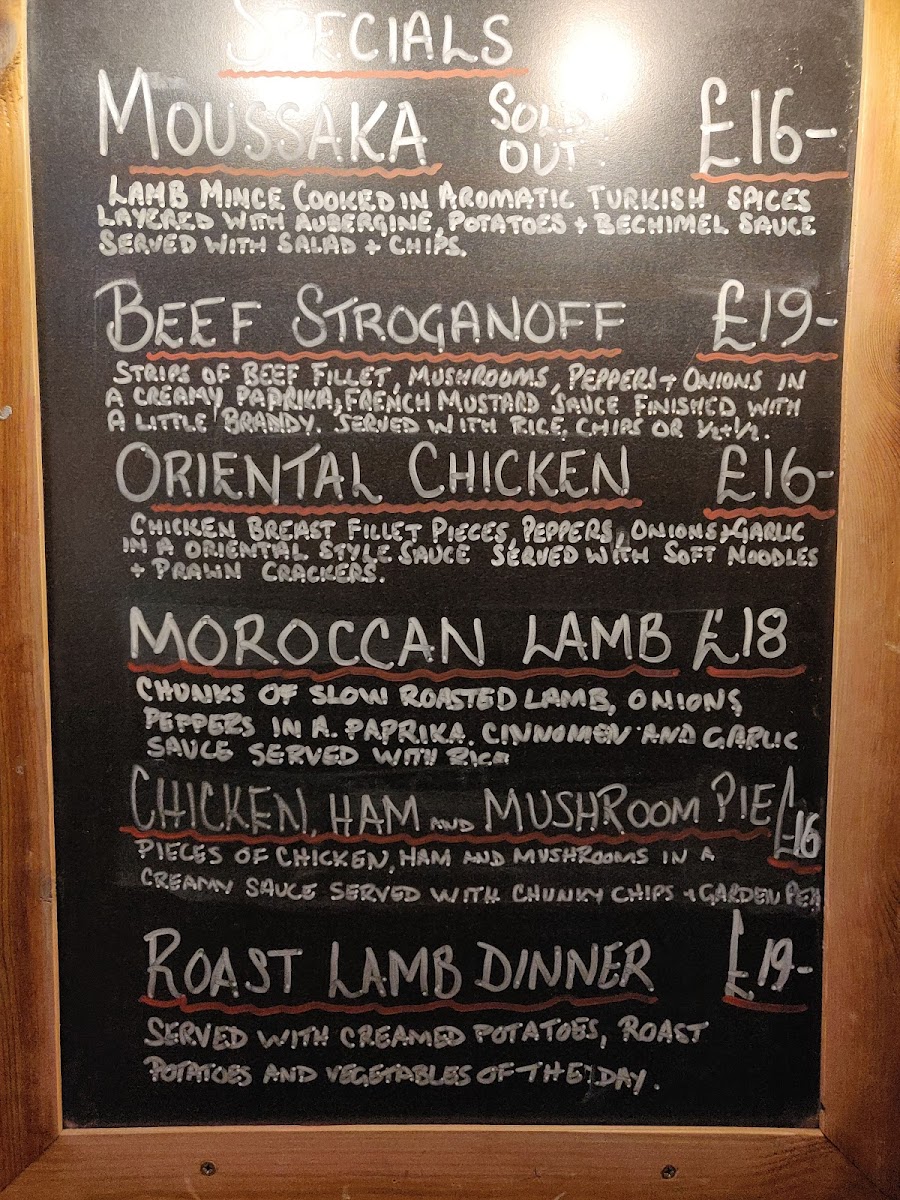 SPECIALS
MOUSSAKA SOLD OUT! £16-
LAMB MINCE COOKED IN AROMATIC TURKISH SPICES
LAYERED WITH AUBERGINE, POTATOES + BECHIMEL SAUCE
SERVED WITH SALAD + CHIPS.
BEEF STROGANOFF £19-
STRIPS OF BEEF FILLET, MUSHROOMS, PEPPERS + ONIONS IN
A CREAMY, PAPRIKA, FRENCH MUSTARD SAUCE FINISHED WITH
A LITTLE BRANDY. SERVED WITH RICE, CHIPS OR ½+½.
ORIENTAL CHICKEN £16-
CHICKEN BREAST FILLET PIECES, PEPPERS, ONIONS + GARLIC
IN A ORIENTAL STYLE SAUCE SERVED WITH SOFT NOODLES
+ PRAWN CRACKERS.
MOROCCAN LAMB £18
CHUNKS OF SLOW ROASTED LAMB, ONIONS
PEPPERS IN A. PAPRIKA. CINNOMEN AND GARLIC
SAUCE SERVED WITH RICE
CHICKEN, HAM AND MUSHROOM PIE £16
PIECES OF CHICKEN, HAM AND MUSHROOMS IN A
CREAMY SAUCE SERVED WITH CHUNKY CHIPS + GARDEN PEA
ROAST LAMB DINNER £19-
SERVED WITH CREAMED POTATOES, ROAST
POTATOES AND VEGETABLES OF THE DAY.